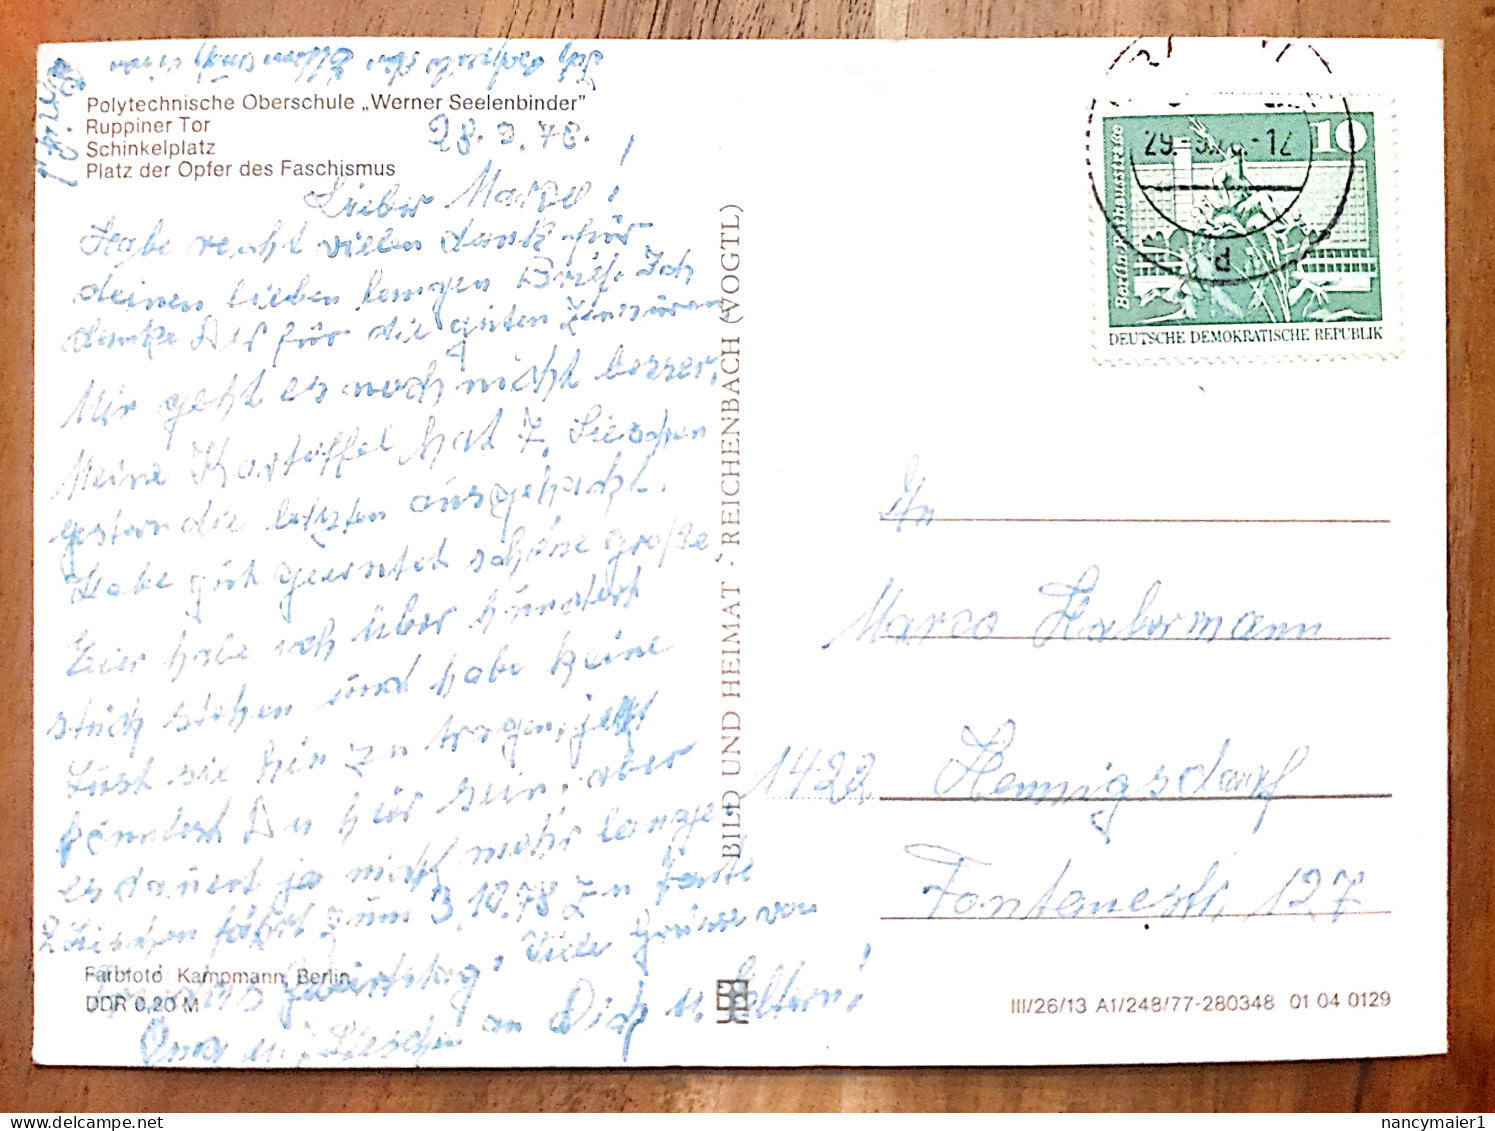 Polytechnische Oberschule „Werner Seelenbinder”
Ruppiner Tor
Schinkelplatz
Platz der Opfer des Faschismus
28. 9. 78.
Lieber Marco!
Habe recht vielen dank für
deinen lieben langen Brief. Ich
danke Dir für die guten Zensuren
Mir geht es noch nicht besser,
Meine Kartoffel hat
gestern die letzten ausgehackt.
Habe gut geerntet schöne große
habe ich über hundert
stück stehen und habe keine
Lust sie hin zu tragen, jetzt
könntest Du hier sein, aber
es dauert ja nicht mehr lange
Lieschen fährt zum 3 10.78 zu Tante
Geburtstag, Viele Grüsse von
Oma u. Lieschen an Dich u. Eltern!
Farbfoto: Kampmann, Berlin
DDR 0,20 M
BILD UND HEIMAT · REICHENBACH (VOGTL)
29.-9.78.-12
d
10
Berlin-Rathausstraße
DEUTSCHE DEMOKRATISCHE REPUBLIK
An
Marco Habermann
1422 Hennigsdorf
Fontanestr. 127
III/26/13 A1/248/77-280348 01 04 0129
nancymaier1